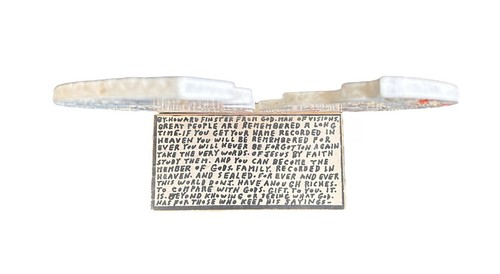 BY.HOWARD FINSTER FROM GOD.MAN OF VISIONS.
GREAT PEOPLE ARE REMEMBERED A LONG
TIME.IF YOU GET YOUR NAME RECORDED IN
HEAVEN YOU WILL BE REMEMBERED FOR
EVER YOU WILL NEVER BE FORGOTTON AGAIN
TAKE THE VERY WORDS. OF JESUS BY FAITH
STUDY THEM. AND YOU CAN BECOME THE
MEMBER OF GODS. FAMILY. RECORDED IN
HEAVEN. AND SEALED. FOR EVER AND EVER
THIS WORLD DONT. HAVE ANOUGH RICHES.
TO COMPARE WITH GODS. GIFT. TO YOU. IT.
IS. BEYOND KNOWING OR SEEING WHAT GOD.
HAS FOR THOSE WHO KEEP HIS SAYINGS-